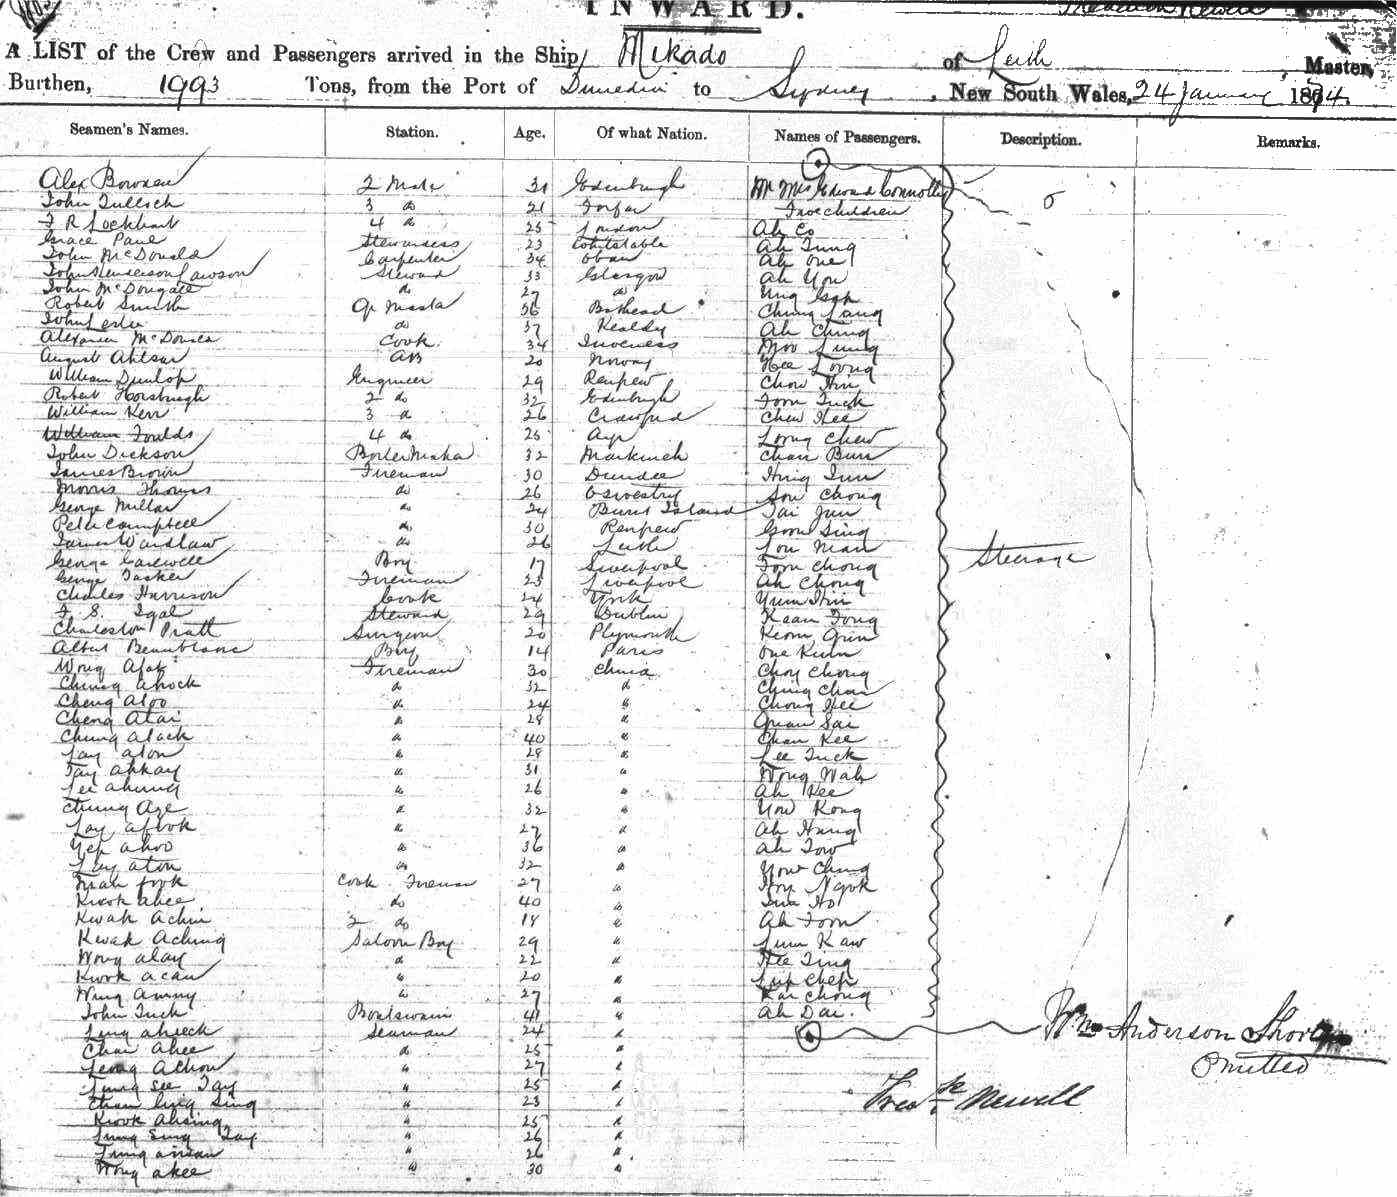 INWARD.
A LIST of the Crew and Passengers arrived in the Ship Mikado of Leith, Master,
Burthen, 1993 Tons, from the Port of Dunedin to Sydney, New South Wales, 24 January 1874.
Seamen's Names. Station. Age. Of what Nation. Names of Passengers. Description. Remarks.
Alex Bowman 2 Mate 31 Edinburgh Mr Mrs Edward Connolly
John Tulloch 3 do 21 Forfar children
F R Lockhart 4 do 25 London Ah Co
Grace Paul Stewardess 23 Ah Tung
John McDonald Carpenter 34 Oban Ah One
John Henderson Lawson Steward 33 Glasgow Ah You
John McDougall do 27 do
Robert Smith Qr Master 36 Ching Lang
John Leslie do 37 Ah Ching
Alexander McDonald Cook 34 Inverness Moo Lung
August AB 20 Norway Hee Loong
William Dunlop Engineer 29 Renfrew Chow Hin
Robert Horsburgh 2 do 32 Edinburgh Foon Tuck
William Kerr 3 do 26 Crawford Chew Hee
William Foulds 4 do 25 Ayr Loong Chew
John Dickson Boiler Maker 32 Markinch Chan Bun
James Brown Fireman 30 Dundee
Morris Thomas do 26 Oswestry Sou Chong
George Millar do 24 Burnt Island Tai Jun
Peter Campbell do 30 Renfrew Goon Sing
James Wardlaw do 26 Leith Lou Man
George Carswell Boy 17 Liverpool Foon Chong Steerage
George Tasker Fireman 23 Liverpool Ah Chong
Charles Harrison Cook 24 York Yum Hin
F S Igal Steward 29 Dublin Kaan Fong
Charleston Pratt Surgeon 20 Plymouth
Albert Beaublanc Boy 14 Paris One Kum
Wong Afat Fireman 30 China Choy Chong
Ching Ahock do 32 do Ching Chan
Cheng Aloo " 24 " Chong Hee
Cheng Atai " 28 " Quan Sai
Chung Alack " 40 " Chan Kee
Lay Aton " 28 " Lee Tuck
Tay Ahkay " 31 " Wong Wah
Lee Ahung " 26 " Ah Kee
Chung Aze " 32 " Yow Kong
Lay Afook " 27 " Ah Hung
Yep Ahoo " 36 " Ah Tow
Lay Aton " 32 " Yow Chung
fook Cook Fireman 27 "
Kwok Ahee do 40 "
Kwak Achin 2 do 18 " Ah Foon
Kwak Aching Saloon Boy 29 " Lum Kaw
Wong Alay do 22 " Hee Ting
Kwok Acan " 20 "
Wing Ammy " 27 " Kai Chong
John Tuck Boatswain 41 " Ah Dai.
Ling Aheeck Seaman 24 " Wm Anderson
Chai Ahee do 25 " Omitted
Leong Achow " 27 "
Tung See Tay " 25 "
Chan Ling Sing " 23 " Newell
Kwok Ahsing " 25 "
Lung Sing Tay " 26 "
Tung " 26 "
Wong Akee " 30 "